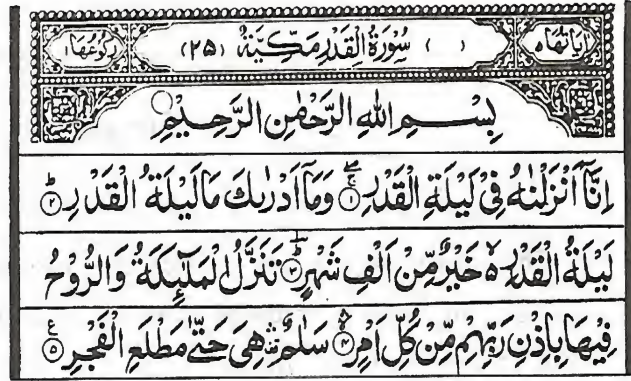 اٰيَاتُهَا ٥ ( ) سُوْرَةُ الْقَدْرِ مَكِّيَّةٌ (٢٥) رُكُوْعُهَا ١
بِسْمِ اللهِ الرَّحْمٰنِ الرَّحِيْمِ
اِنَّآ اَنْزَلْنٰهُ فِيْ لَيْلَةِ الْقَدْرِ ۚۖ ﴿١﴾ وَمَآ اَدْرٰىكَ مَا لَيْلَةُ الْقَدْرِ ؕ ﴿٢﴾
لَيْلَةُ الْقَدْرِ ۙ٥ خَيْرٌ مِّنْ اَلْفِ شَهْرٍ ؕ ﴿٣﴾ تَنَزَّلُ الْمَلٰٓئِكَةُ وَالرُّوْحُ
فِيْهَا بِاِذْنِ رَبِّهِمْ مِّنْ كُلِّ اَمْرٍ ۛ ﴿٤﴾ سَلٰمٌ ۛ هِيَ حَتّٰى مَطْلَعِ الْفَجْرِ ﴿٥﴾ ع